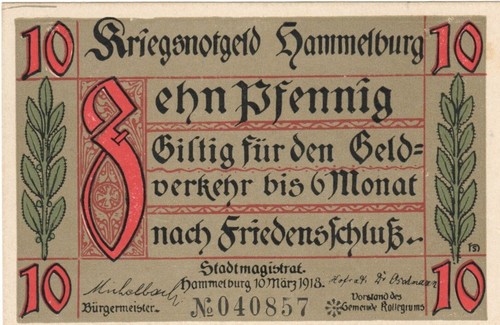 10 Kriegsnotgeld Hammelburg 10
Zehn Pfennig
Giltig für den Geld-
verkehr bis 6 Monat
nach Friedensschluß.
Stadtmagistrat.
Hammelburg 10 März 1918.
Bürgermeister.
№ 040857
Vorstand des
Gemeinde Kollegiums
10 10